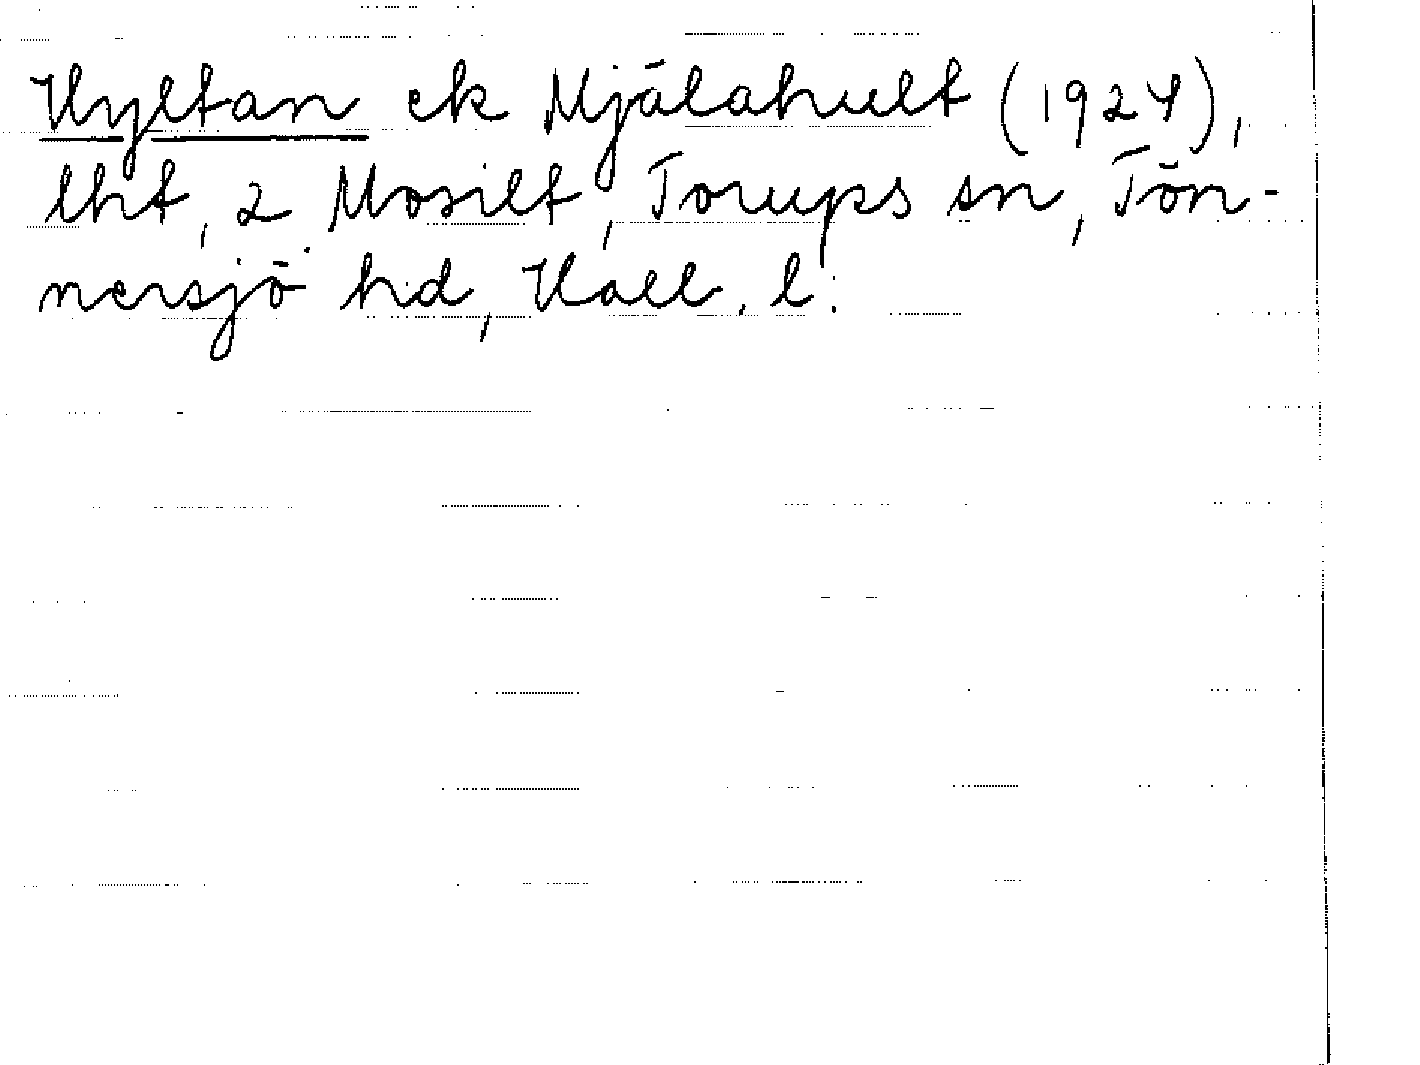 Hyltan ek Mjälahult (1924),
lht, 2 Mosilt, Torups sn, Tön-
nersjö hd, Hall. l.